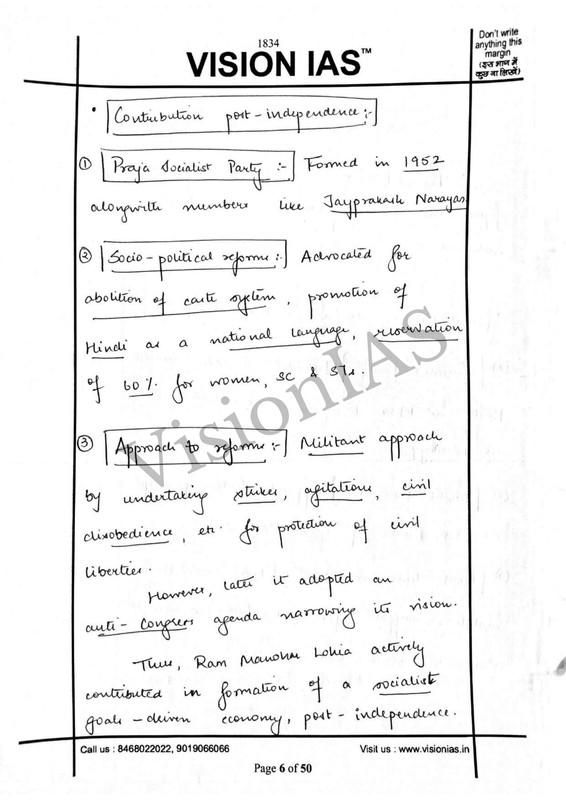 1834
VISION IAS™
Don't write
anything this
margin
(इस भाग में
कुछ ना लिखें)
• Contribution post-independence:-
① Praja Socialist Party :- Formed in 1952
alongwith members like Jayprakash Narayan
② Socio-political reforms:- Advocated for
abolition of caste system, promotion of
Hindi as a national language, reservation
of 60% for women, SC & STs.
③ Approach to reforms:- Militant approach
by undertaking strikes, agitations, civil
disobedience, etc. for protection of civil
liberties.
However, later it adopted an
anti-Congress agenda narrowing its vision.
Thus, Ram Manohar Lohia actively
contributed in formation of a socialist
goals-driven economy, post-independence.
VisionIAS
Call us : 8468022022, 9019066066
Visit us : www.visionias.in
Page 6 of 50